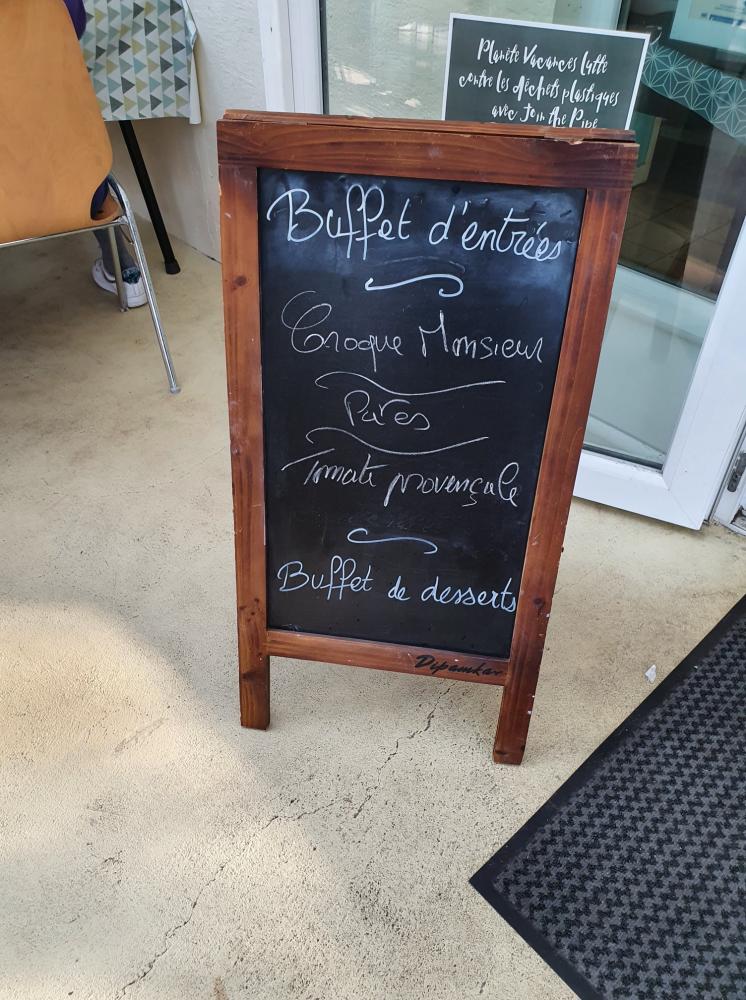 Planète Vacances lutte
contre les déchets plastiques
avec Join the Pipe
Buffet d'entrées
Croque Monsieur
Pâtes
Tomate provençale
Buffet de desserts
Dipamkar